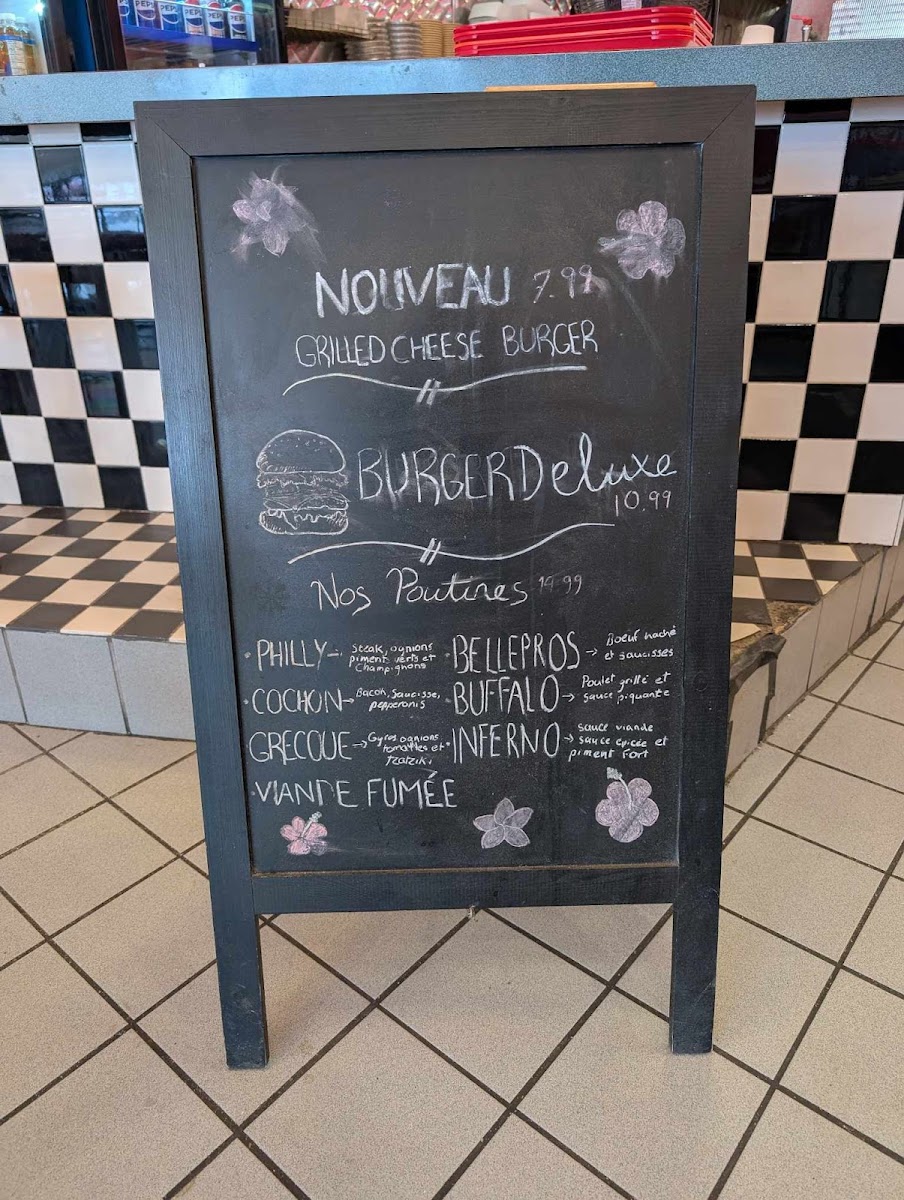 PEPSI PEPSI PEPSI PEPSI
NOUVEAU 7.99
GRILLED CHEESE BURGER
BURGER Deluxe
10.99
Nos Poutines 14.99
• PHILLY → Steak, ognions
piment verts et
Champignons
• COCHON → Bacon, Saucisse,
pepperonis
GRECQUE → Gyros ognions
tomattes et
tzatziki
• VIANDE FUMÉE
• BELLEPROS → Boeuf haché
et saucisses
BUFFALO → Poulet grillé et
sauce piquante
• INFERNO → sauce viande
sauce épicée et
piment Fort